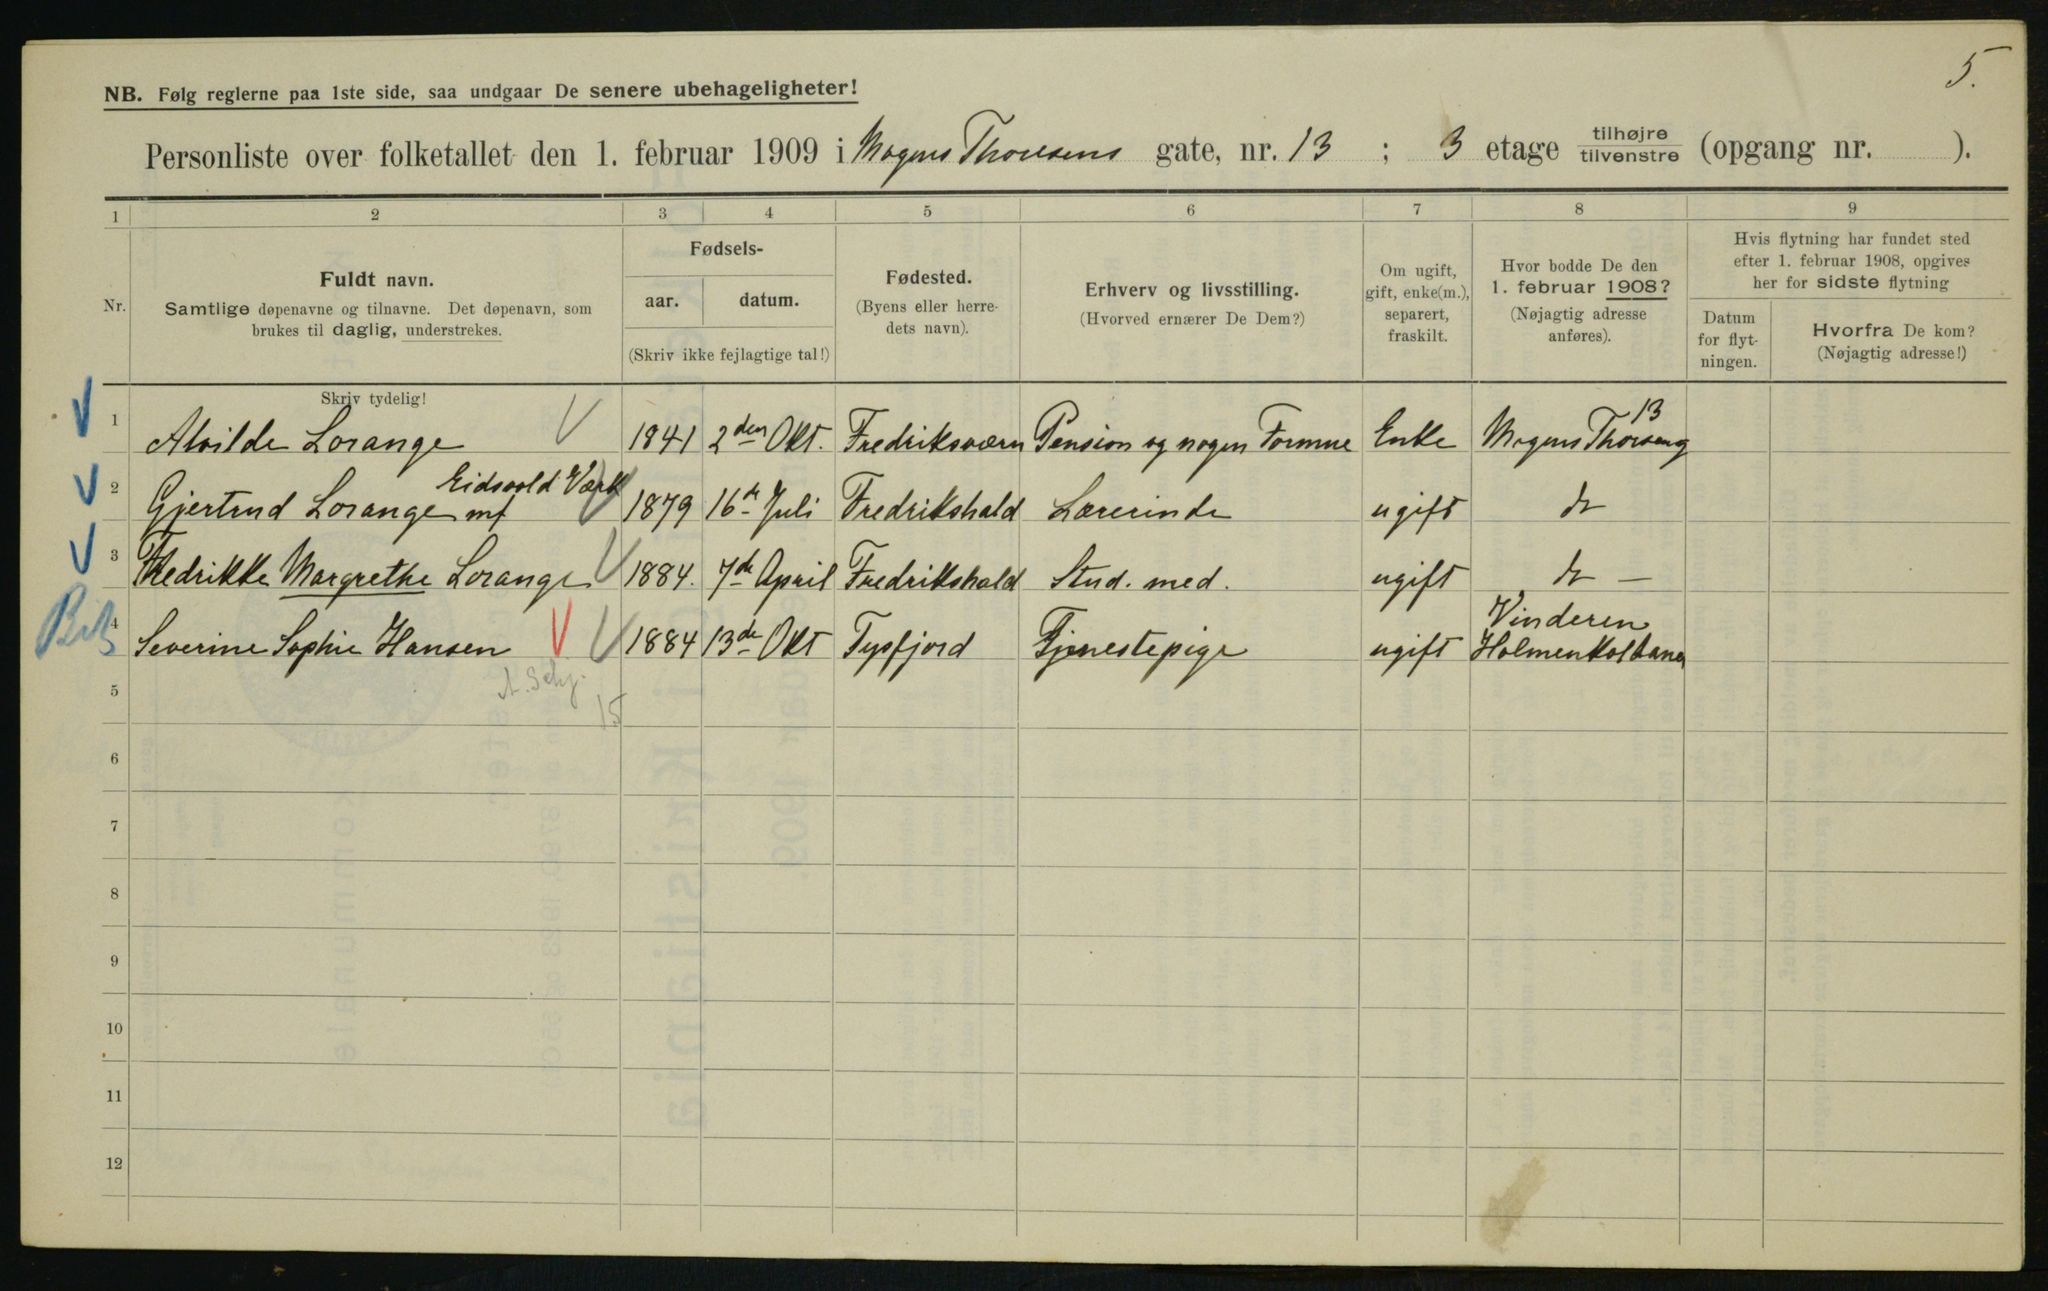 5.
NB. Følg reglerne paa 1ste side, saa undgaar De senere ubehageligheter!
Personliste over folketallet den 1. februar 1909 i Mogens Thorsens gate, nr. 13 ; 3 etage tilhøjre tilvenstre (opgang nr. ).
1 2 3 4 5 6 7 8 9
Nr.
Fuldt navn.
Samtlige døpenavne og tilnavne. Det døpenavn, som
brukes til daglig, understrekes.
Fødsels-
aar. datum.
(Skriv ikke fejlagtige tal!)
Fødested.
(Byens eller herre-
dets navn).
Erhverv og livsstilling.
(Hvorved ernærer De Dem?)
Om ugift,
gift, enke(m.),
separert,
fraskilt.
Hvor bodde De den
1. februar 1908?
(Nøjagtig adresse
anføres).
Hvis flytning har fundet sted
efter 1. februar 1908, opgives
her for sidste flytning
Datum
for flyt-
ningen.
Hvorfra De kom?
(Nøjagtig adresse!)
Skriv tydelig!
1 Alvilde Lorange 1841 2den Okt. Fredriksværn Pension og nogen Formue Enke Mogens Thorseng 13
2 Gjertrud Lorange mf Eidsvold Værk 1879 16de Juli Fredrikshald Lærerinde ugift do
3 Fredrikke Margrethe Lorange 1884. 7de April Fredrikshald Stud. med. ugift do —
4 Severine Sophie Hansen 1884 13de Okt Tysfjord Tjenestepige ugift Vinderen
Holmenkolbanen
5
15
6
7
8
9
10
11
12